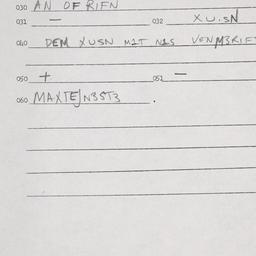 030 AN OF RIFN
031 — 032 XU.SN
040 DEM XUSN MIT NIS VENM3RIF
050 + 052 —
060 MAXTEJN3ST3 .